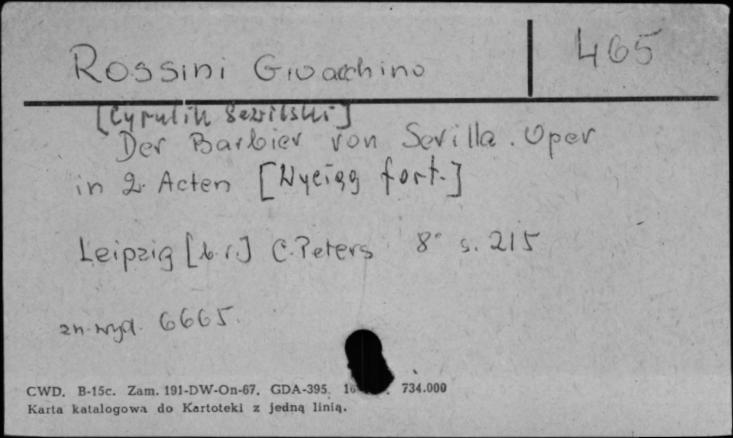 Rossini Gioacchino
465
[Cyrulik Sewilski]
Der Barbier von Sevilla. Oper
in 2 Acten [Wyciąg fort.]
Leipzig [b.r.] C. Peters 8° s. 215
zn. wyd. 6665.
CWD. B-15c. Zam. 191-DW-On-67. GDA-395. 734.000
Karta katalogowa do Kartoteki z jedną linią.